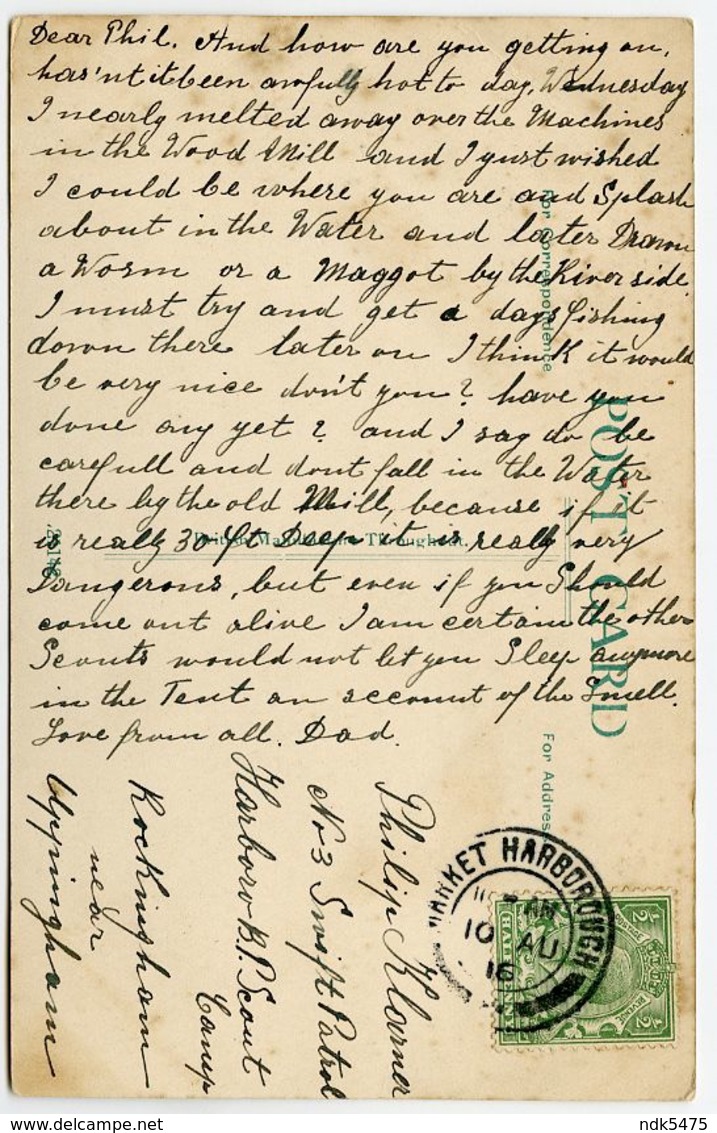 Dear Phil. And how are you getting on,
has'nt it been awfully hot to day, Wednesday
I nearly melted away over the Machines
in the Wood Mill and I just wished
I could be where you are and Splash
about in the Water and later Drown
a Worm or a Maggot by the River side.
I must try and get a days fishing
down there later on I think it would
be very nice don't you? have you
done any yet? and I say do be
carefull and dont fall in the Water
there by the old Mill, because if it
is really 30 ft Deep it is really very
Dangerous, but even if you Should
come out alive I am certain the other
Scouts would not let you Sleep anymore
in the Tent on account of the Smell.
Love from all. Dad.
Philip Klarner
No 3 Swift Patrol
Harboro B.P. Scout
Camp
Rockingham
near
Uppingham
For Correspondence
POST CARD
For Address
British Manufacture Throughout.
MARKET HARBOROUGH
AM
10 AU
16
POSTAGE
REVENUE
1/2
1/2
HALFPENNY
ndk5475